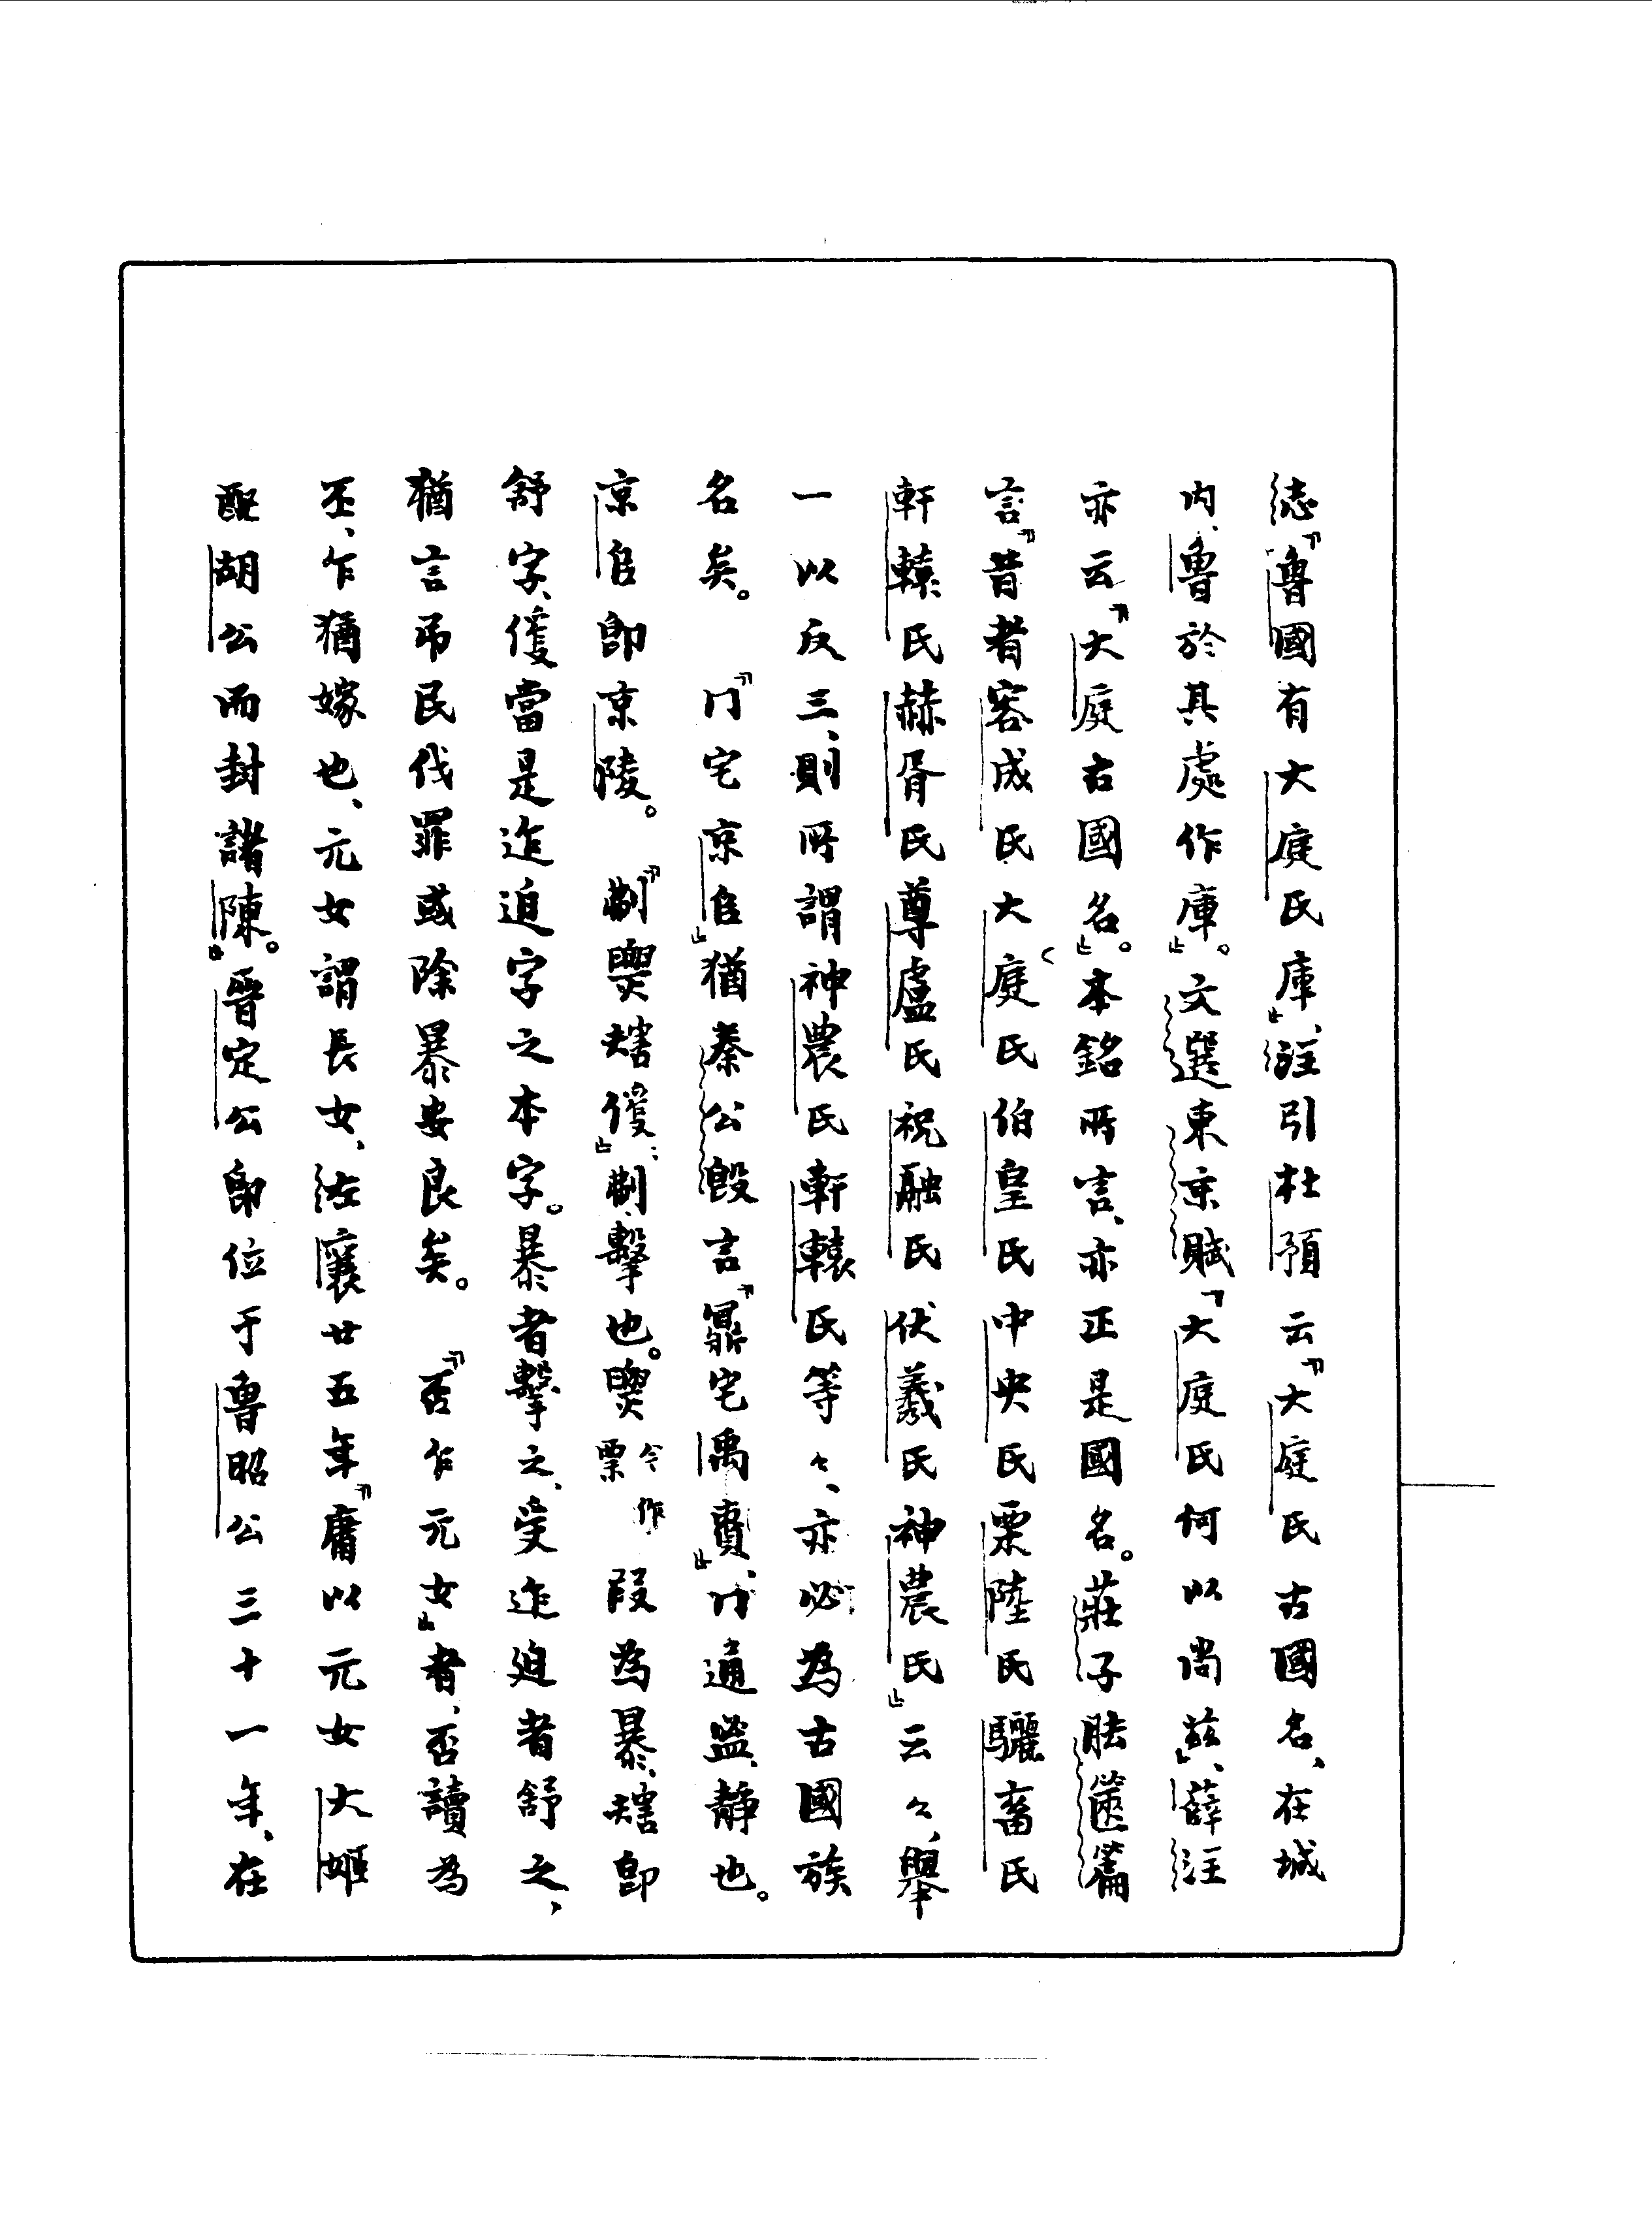 志『魯國有大庭氏庫』、注引杜預云『大庭氏古國名、在城
內、魯於其處作庫』。文選東京賦「大庭氏何以尚茲」、薛注
亦云『大庭古國名』。本銘所言、亦正是國名。莊子胠篋篇
言『昔者容成氏大庭氏伯皇氏中央氏栗陸氏驪畜氏
軒轅氏赫胥氏尊盧氏祝融氏伏羲氏神農氏』云々、舉
一以反三、則所謂神農氏軒轅氏等々、亦必為古國族
名矣。『冂宅京𠂤』猶秦公𣪘言『鼏宅禹賚』、冂通謐、靜也。
京𠂤即京陵。『㔍㬥𦎫㑛』：㔍、擊也。㬥今作票叚為暴、即
舒字、㑛當是迮迫字之本字。暴者擊之、受迮迫者舒之、
猶言弔民伐罪或除暴安良矣。『否乍元女』者、否讀為
丕、乍猶嫁也、元女謂長女、左襄廿五年『庸以元女大姬
配胡公而封諸陳』。晉定公即位于魯昭公三十一年、在